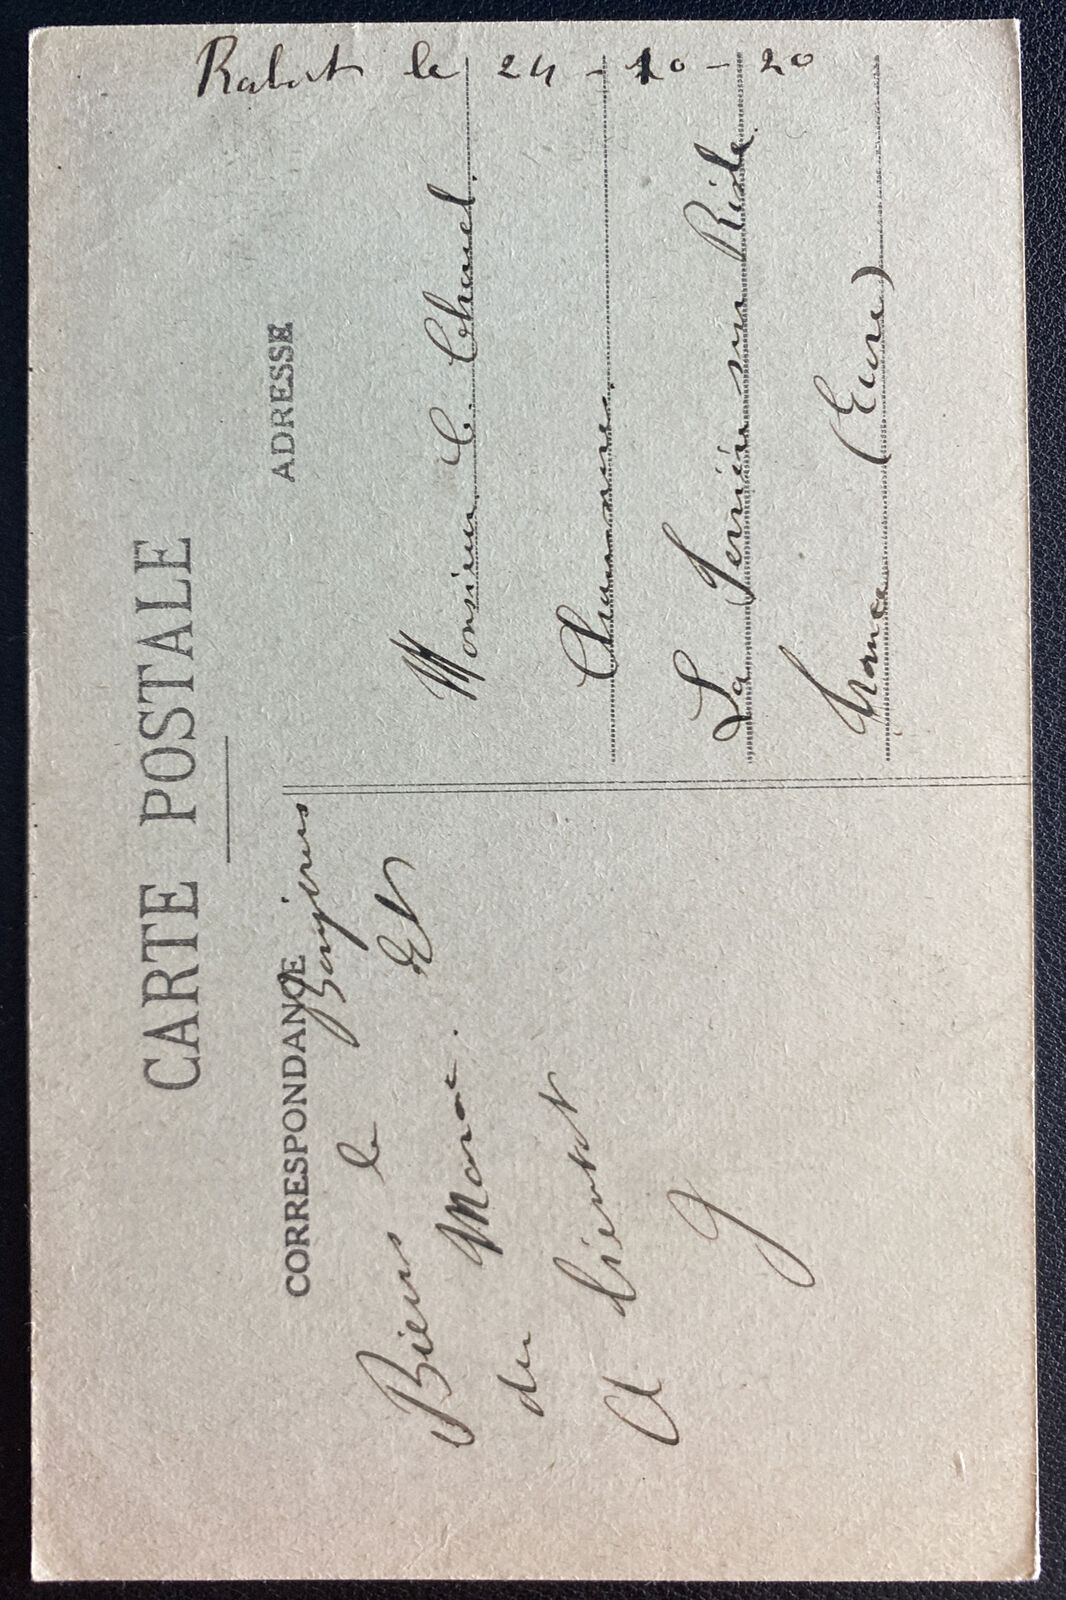 CARTE POSTALE
CORRESPONDANCE
ADRESSE
Rabat le 24-10-20
Biens le Bonjours
du Maroc. Et
A bientot
G
Monsieur C Chanel.
La Ferrière sur Risle.
France (Eure)